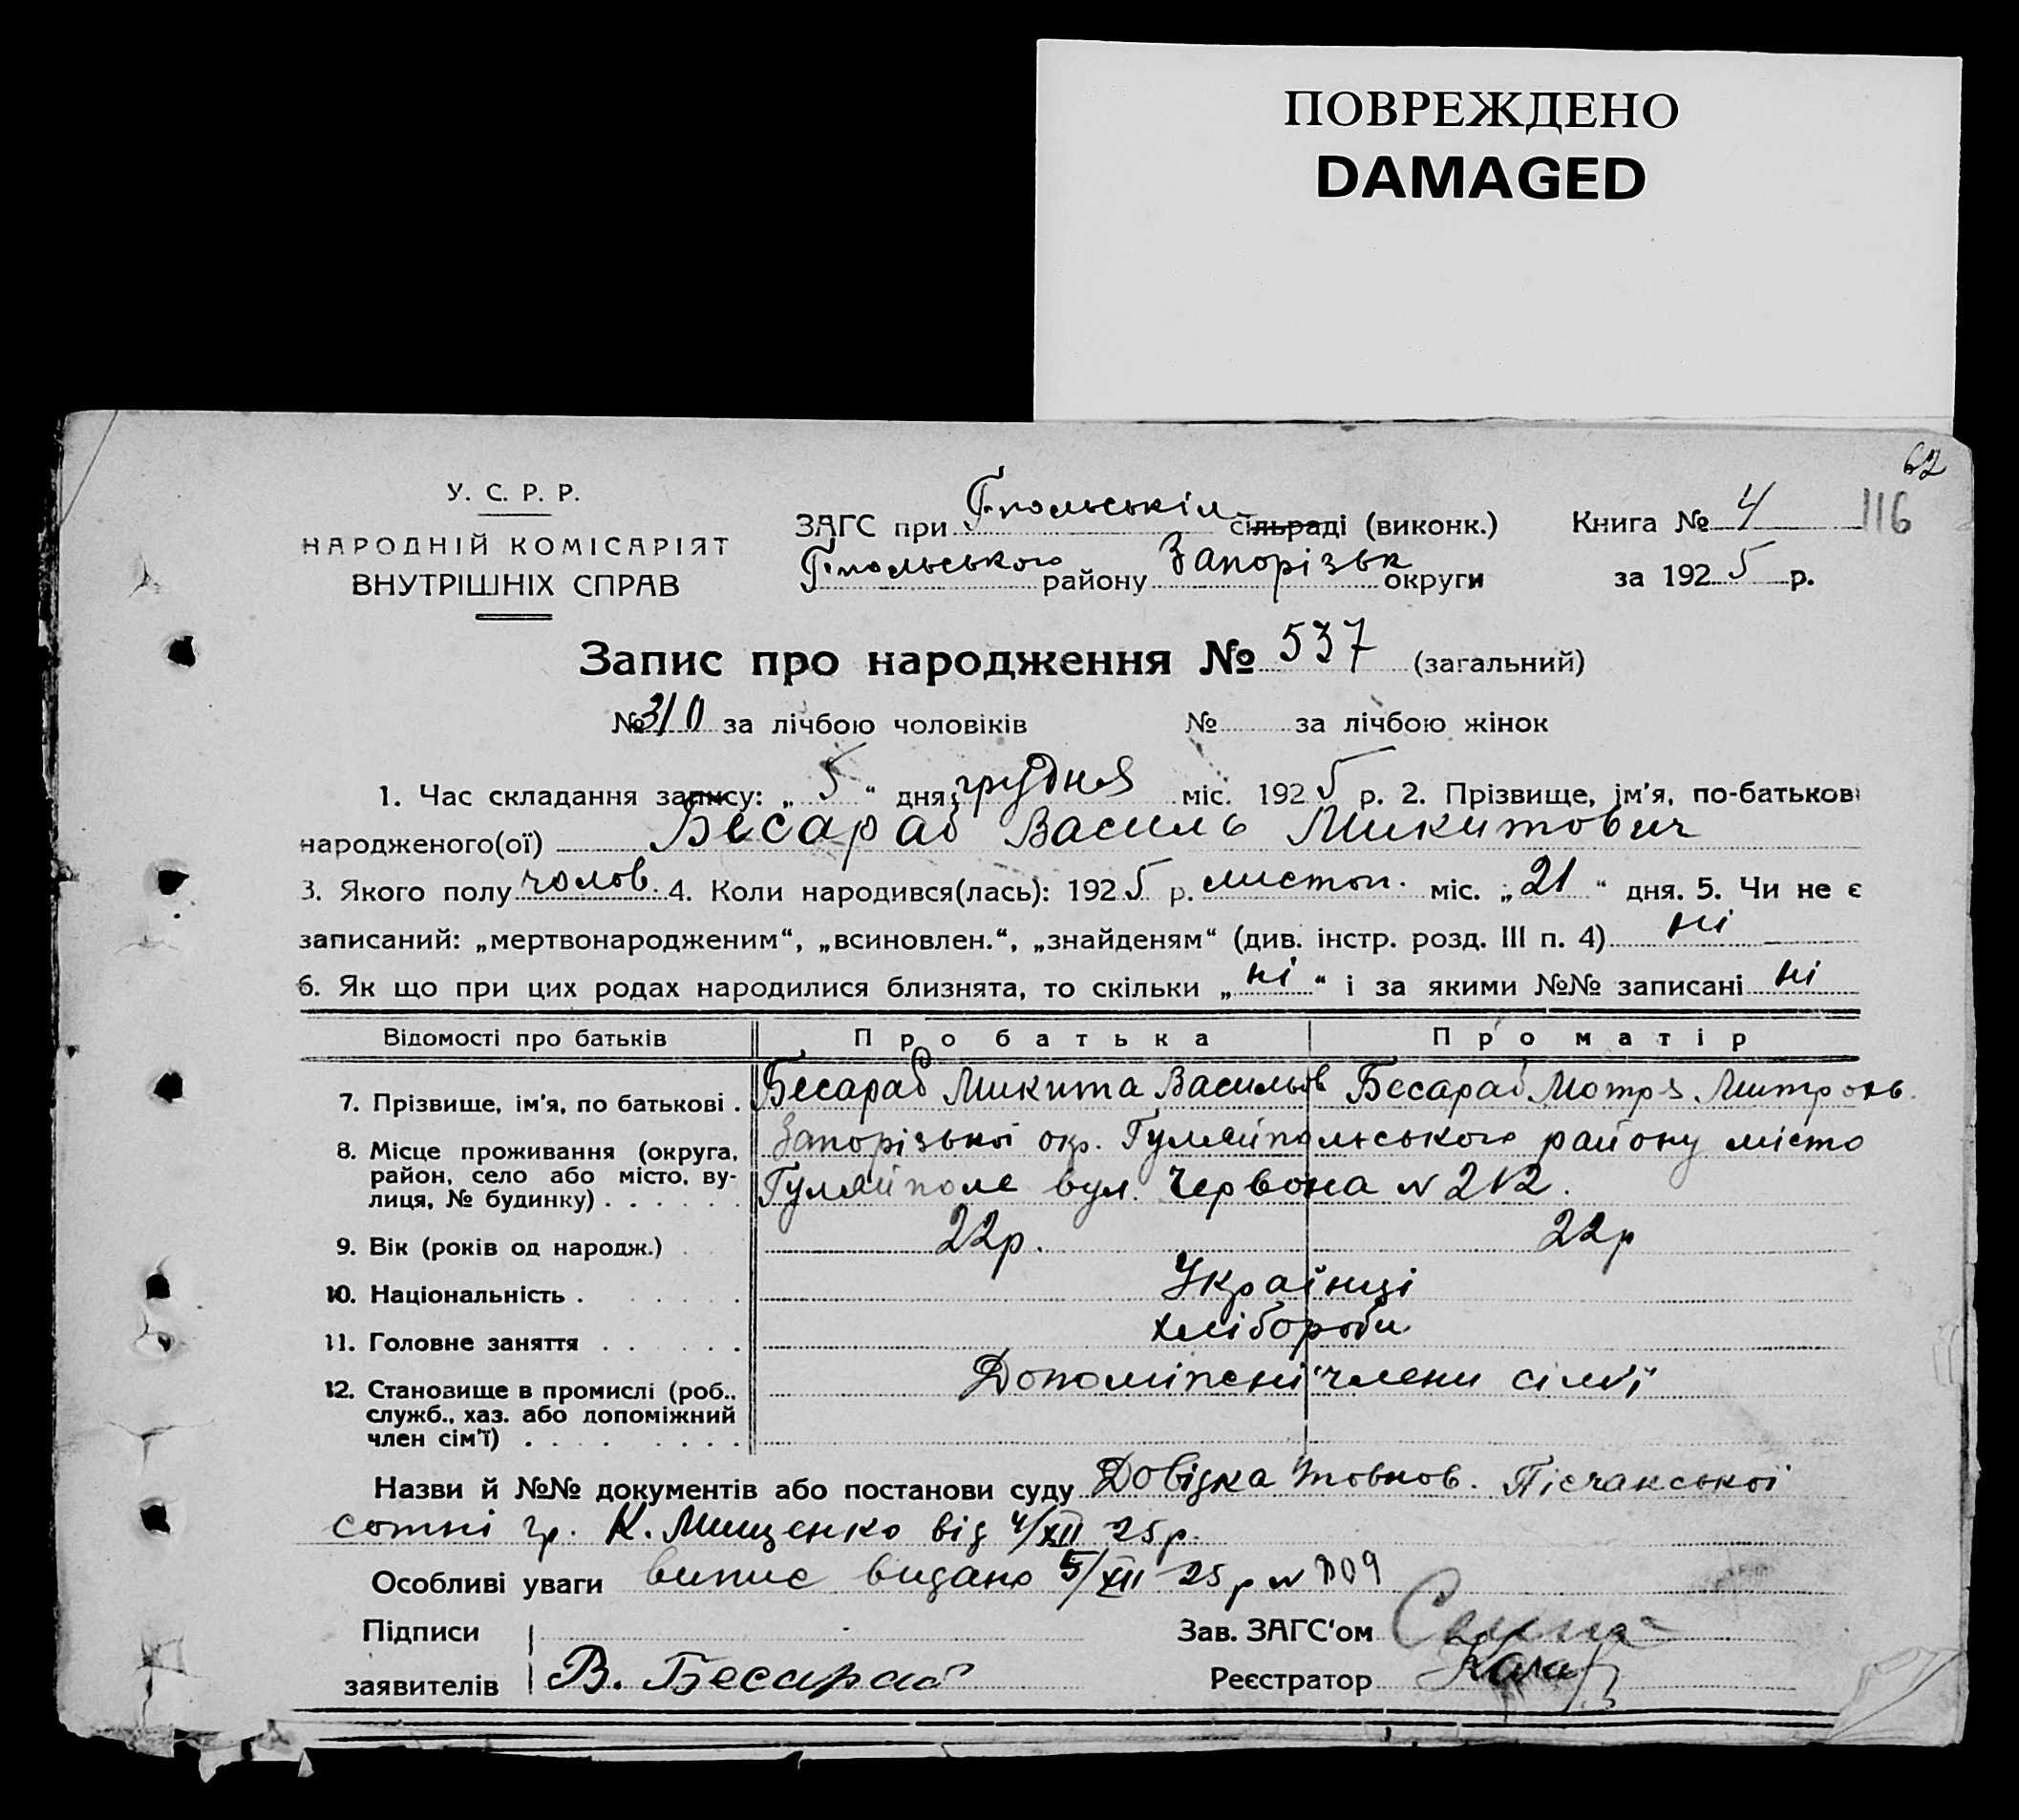 ПОВРЕЖДЕНО
DAMAGED
62
116
У. С. Р. Р.
НАРОДНІЙ КОМІСАРІЯТ
ВНУТРІШНІХ СПРАВ
ЗАГС при Гпольськім сільраді (виконк.)
Гпольського району Запорізьк округи
Книга № 4
за 1925 р.
Запис про народження № 537 (загальний)
№ 310 за лічбою чоловіків № за лічбою жінок
1. Час складання запису: „ 5 “ дня грудня міс. 1925 р. 2. Прізвище, ім’я, по-батькові
народженого(ої) Бесараб Василь Микитович
3. Якого полу чолов. 4. Коли народився(лась): 1925 р. листоп. міс. „ 21 “ дня. 5. Чи не є
записаний: „мертвонародженим“, „всиновлен.“, „знайденям“ (див. інстр. розд. III п. 4) ні
6. Як що при цих родах народилися близнята, то скільки „ ні “ і за якими №№ записані ні
Відомості про батьків Про батька Про матір
7. Прізвище, ім’я, по батькові . Бесараб Микита Васильов Бесараб Мотря Митронь
8. Місце проживання (округа, Запорізької окр. Гуляйпольського району місто
район, село або місто, ву-
лиця, № будинку) . . . . . . Гуляйполе вул. Червона № 212.
9. Вік (років од народж.) 22р. 22р
10. Національність . Українці
11. Головне заняття . . . . . . хлібороби
12. Становище в промислі (роб., Допоміжні члени сімї
служб., хаз. або допоміжний
член сім’ї) . . . . . . . .
Назви й №№ документів або постанови суду Довідка уповнов. Пісчакської
сотні гр. К. Мищенко від 4/XII 25р.
Особливі уваги випис видано 5/XII 25 р №
Підписи
заявителів В. Бесараб
Зав. ЗАГС‘ом
Реєстратор